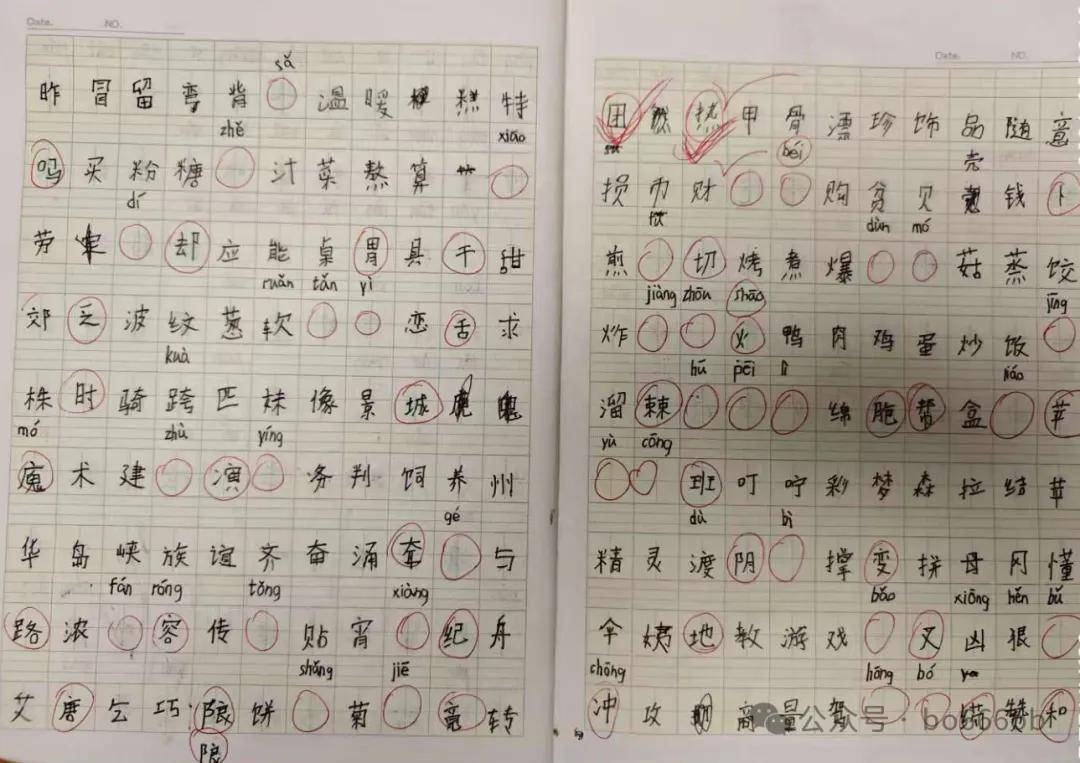 Date. NO.
sǎ
昨 冒 留 弯 背 温 暖 糕 特
zhě xiāo
吗 买 粉 糖 汁 菜 熬 算
dí
劳 却 应 能 桌 胃 具 干 甜
ruǎn tǎn yì
郊 乏 波 纹 葱 软 恋 舌 求
kuà
株 时 骑 跨 匹 妹 像 景 城
mó zhù yíng
魔 术 建 演 务 判 饲 养 州
gé
华 岛 峡 族 谊 齐 奋 涌 套 与
fán róng tǒng xiàng
路 浓 容 传 贴 宵 纪 舟
shǎng jiē
艾 唐 乞 巧 饼 菊 竟 转
Date. NO.
团 热 甲 骨 漂 珍 饰 品 随 意
béi 壳
损 币 财 购 贫 欠 钱 卜
dùn mó
煎 切 烤 煮 爆 菇 蒸 饺
jiàng zhōu shāo jīng
炸 火 鸭 肉 鸡 蛋 炒 饭
hú pēi liáo
溜 棘 绵 胞 帮 盒 苹
yù cōng
班 叮 咛 彩 梦 森 拉 结 苹
dù bì
精 灵 渡 阴 撑 变 拼 母 冈 懂
bǎo xiōng hěn bǔ
伞 姨 地 教 游 戏 又 凶 狠
chōng háng bó
冲 攻 商 量 驾 赞 和
公众号